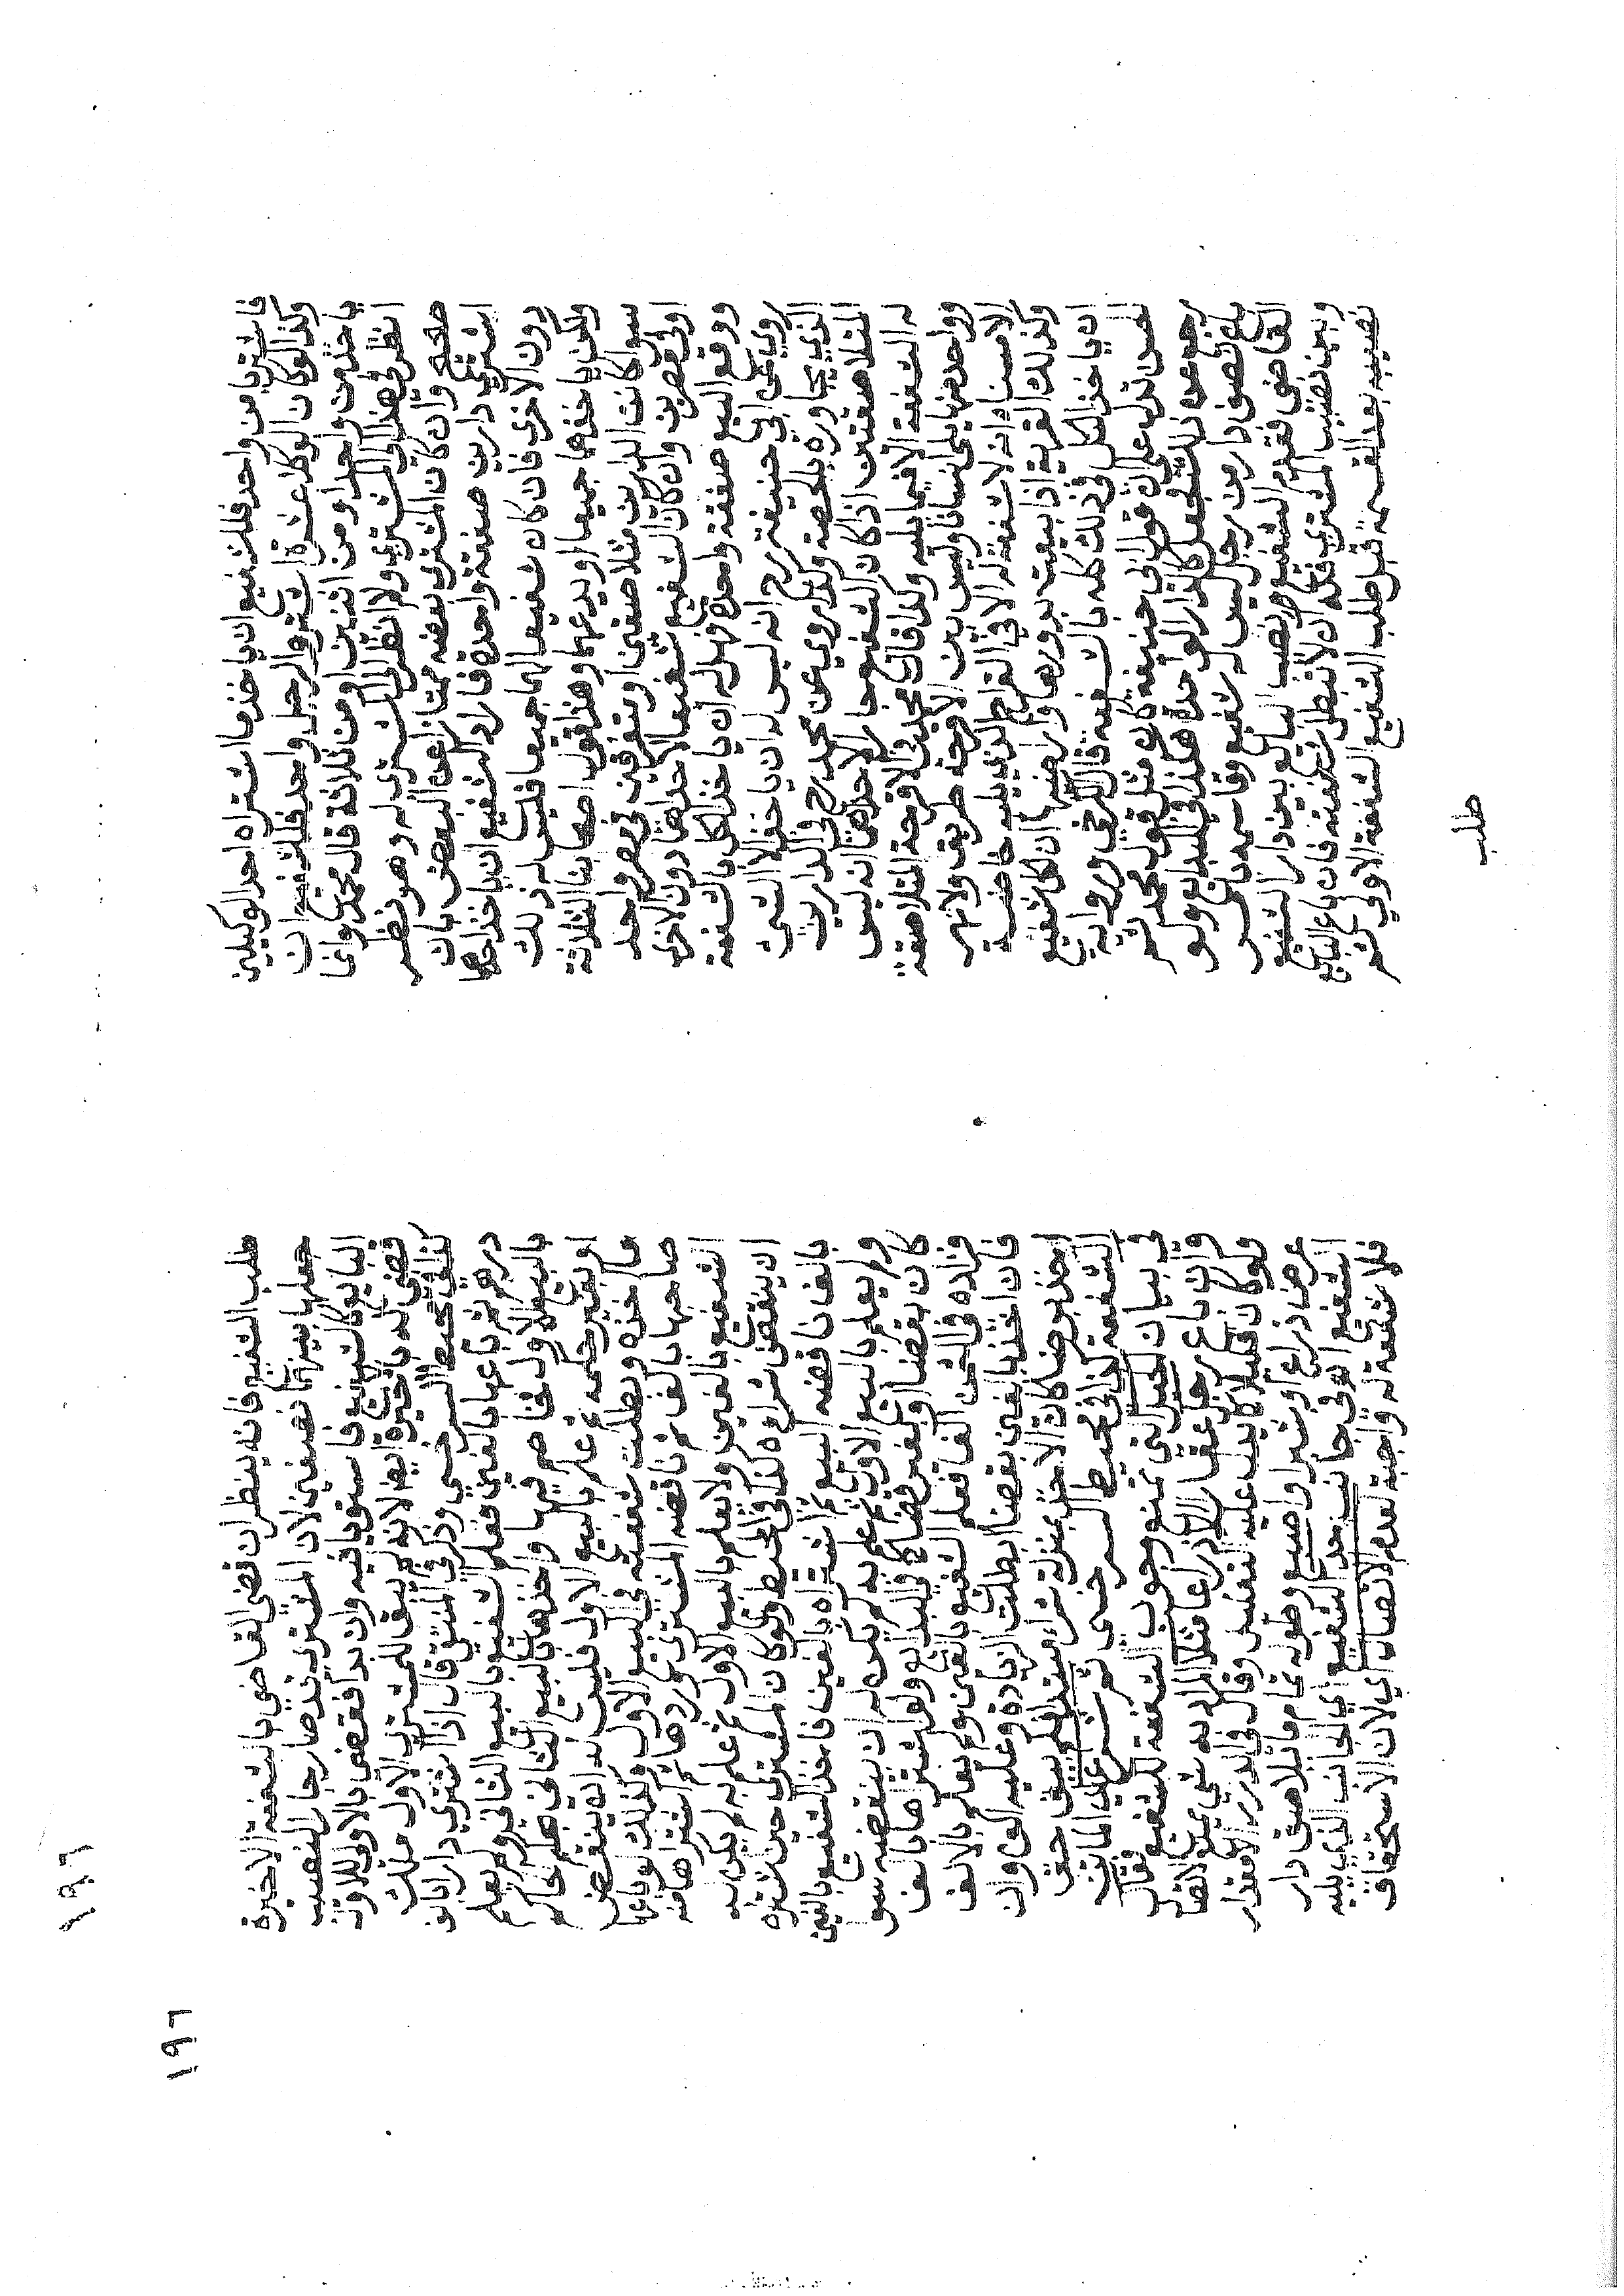 فاشتريا من واحد فللشفيع ان ياخذ ما اشتراه احد الوكيلين
وكذا لو كان الوكلا عشرة اشتروا لرجل واحد فللشفيع ان
ياخذ من واحد او من اثنين او من ثلاثة قال محمد وانما
انظر في هذا الى المشتري ولا انظر الى المشترى له وهو نظر
صحيح وان كان المشترى بعضه ممتازا عن البعض بان
اشترى دارين صفقة واحدة فاراد الشفيع ان ياخذ احداهما
دون الاخرى فان كان شفيعا لهما جميعا فليس له ذلك
ولكن ياخذهما جميعا او يدعهما وهذا قول اصحابنا الثلاثة
سوا كانت الدارين متلاصقتين او متفرقتين في مصر واحد
او في مصرين وان كان الشفيع شفيعا لاحداهما دون الاخرى
ووقع البيع صفقة واحدة فهل له ان ياخذ الكل بالشفعة
روي عن ابي حنيفة رح انه ليس له ان ياخذ الا الشي
الذي يجاوره بالحصة وكذا روي عن محمد رح في الدارين
المتلاصقتين اذا كان الشفيع جار لاحداهما انه ليس
له الشفعة الا فيما يليه وكذا قال محمد في الاقرحة المتلاصقة
وواحد منها يلي انسانا وليس بين الاقرحة طريق ولا نهر
الا مسناة انه لا شفعة له الا في القراح الذي يليه خاصة
وكذلك القرية اذا بيعت بدورها واراضيها ان لكل شفيع
ان ياخذ الكل في ذلك كله بالشفعة قال الكرخي ورواية
الحسن تدل على ان قول ابي حنيفة كان مثل قول محمد ثم
رجع عن ذلك فجعله كالدار الواحدة هكذا في البدايع ولو
باع نصف دار من رجل ليس له شفيع وقاسمه بامر
القاضي فقدم الشفيع ونصيب البايع بين دار الشفيع
وبين نصيب المشتري فله ان لا تبطل شفعته فان باع البايع
نصيبه بعد القسمة قبل طلب الشفيع الشفعة الاولى ثم
طلب
طلب الشفيع فانه ينظر ان قضى القاضي بالشفعة الاخيرة
جعلها بينهما نصفين لان المشتري قد صار جارا لنصيب
البايع كالشفيع فاستويا فيه وان بدا فقضى بالاولى للاول
قضى له بالاخيرة ايضا لانه لم يبق للمشتري الاول ملك
كذا في محيط السرخسي وذكر في المنتقى قال اذا اشترى دارا بالف
درهم ثم باعها بالفين فعلم الشفيع بالبيع الثاني ولم يعلم
بالبيع الاول فخاصم فيها واخذها بالبيع الثاني بحكم حاكم
او بغير حكم ثم علم بالبيع الاول فليس له ان ينقض
ما اخذه وبطلت شفعته في البيع الاول وكذلك لو باعها
صاحبها بالف ثم ناقضه المشتري وردها ثم اشتراها منه
الشفيع بالفين ولا يعلم بالبيع الاول ثم علم به لم يكن له
ان ينقض شراءه كذا في المحيط ولو كان المشتري حين اشتراه
بالف ناقضه البيع ثم اشتراه بالفين فاخذ الشفيع بالفين
ولم يعلم بالبيع الاول ثم علم به لم يكن له ان ينقضه سوا
كان بقضا او بغير قضا كذا في البدايع ولو اشتراها بالف
وزاده في الثمن الفا فعلم الشفيع بالفين ولم يعلم بالالف
فان اخذ بالفين بقضا بطلت الزيادة وعليه الف وان
اخذ برضا كان الاخذ بمنزلة شراء مبتدا فلم يبق حق
الشفعة كذا في محيط السرخسي ثم شرع في الماتن
في بيان الحيل التي تمنع وجوب الشفعة للشفيع فقال
وان باع رجل عقارا الا ذراعا مثلا المراد به شي يمنع الاتصال
ولو كان قليلا كما يدل عليه التفسير وقال في الدرر الا مقدار
عرض ذراع او شبر او اصبع وطوله تمام ما يلاصق دار
الشفيع او في جانب حد الشفيع اي الجانب الذي يليه
فلا شفعة له واجبة لعدم الاتصال اي لان الاستحقاق
١٩٦
١٩٦